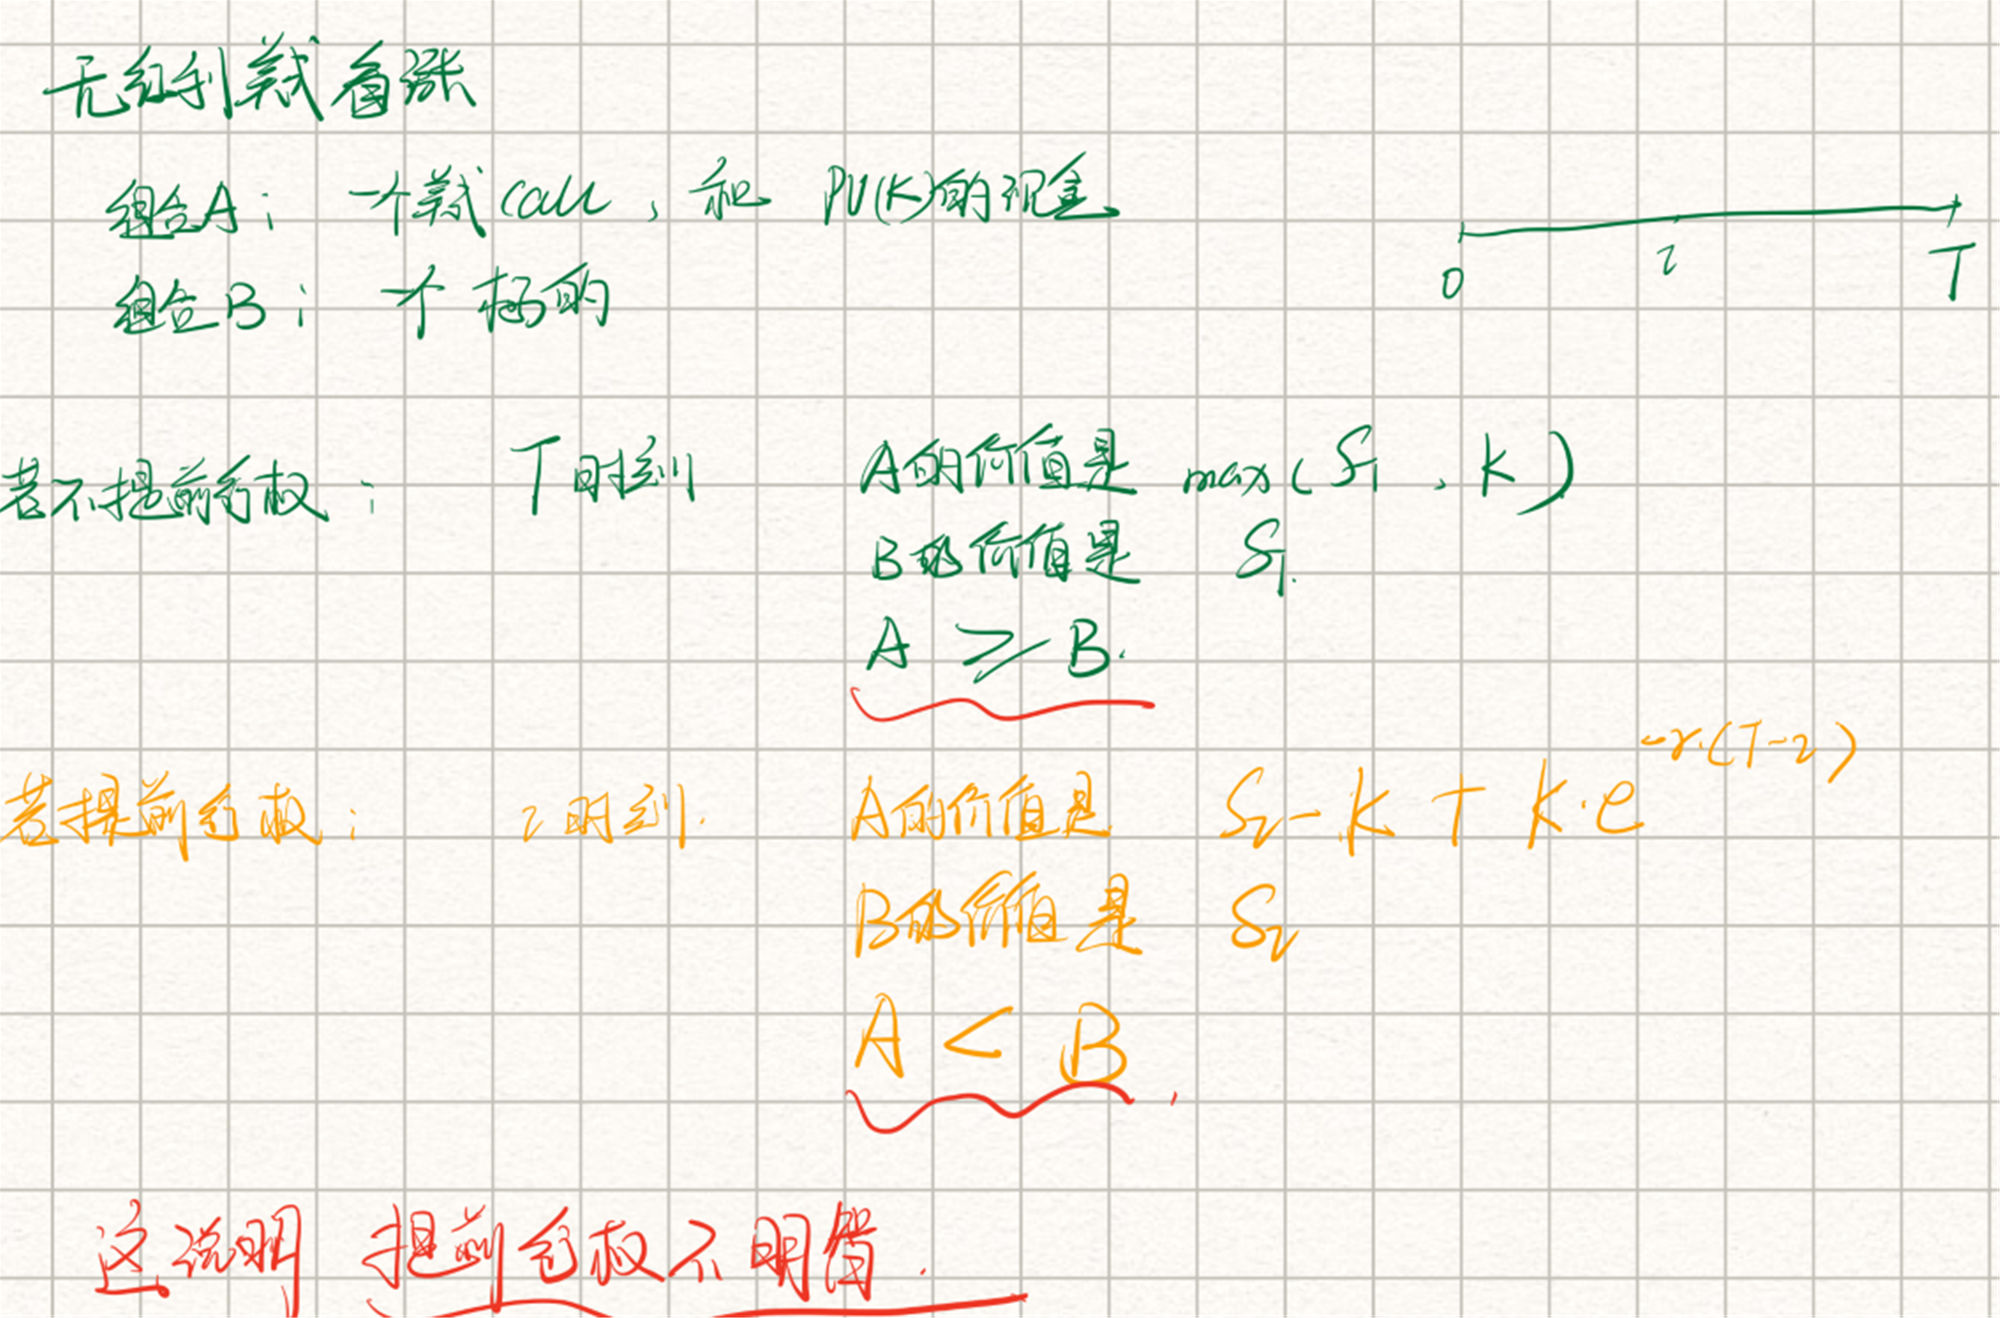 无红利美式看涨
组合A: 一个美式call, 和 PV(K)的现金
组合B: 一个标的
0 τ T
若不提前行权: T时刻 A的价值是 max(S_T, K)
B的价值是 S_T.
A ≥ B.
若提前行权: τ时刻. A的价值是 S_τ - K + K·e^{-r·(T-τ)}
B的价值是 S_τ
A < B.
这说明 提前行权不明智.